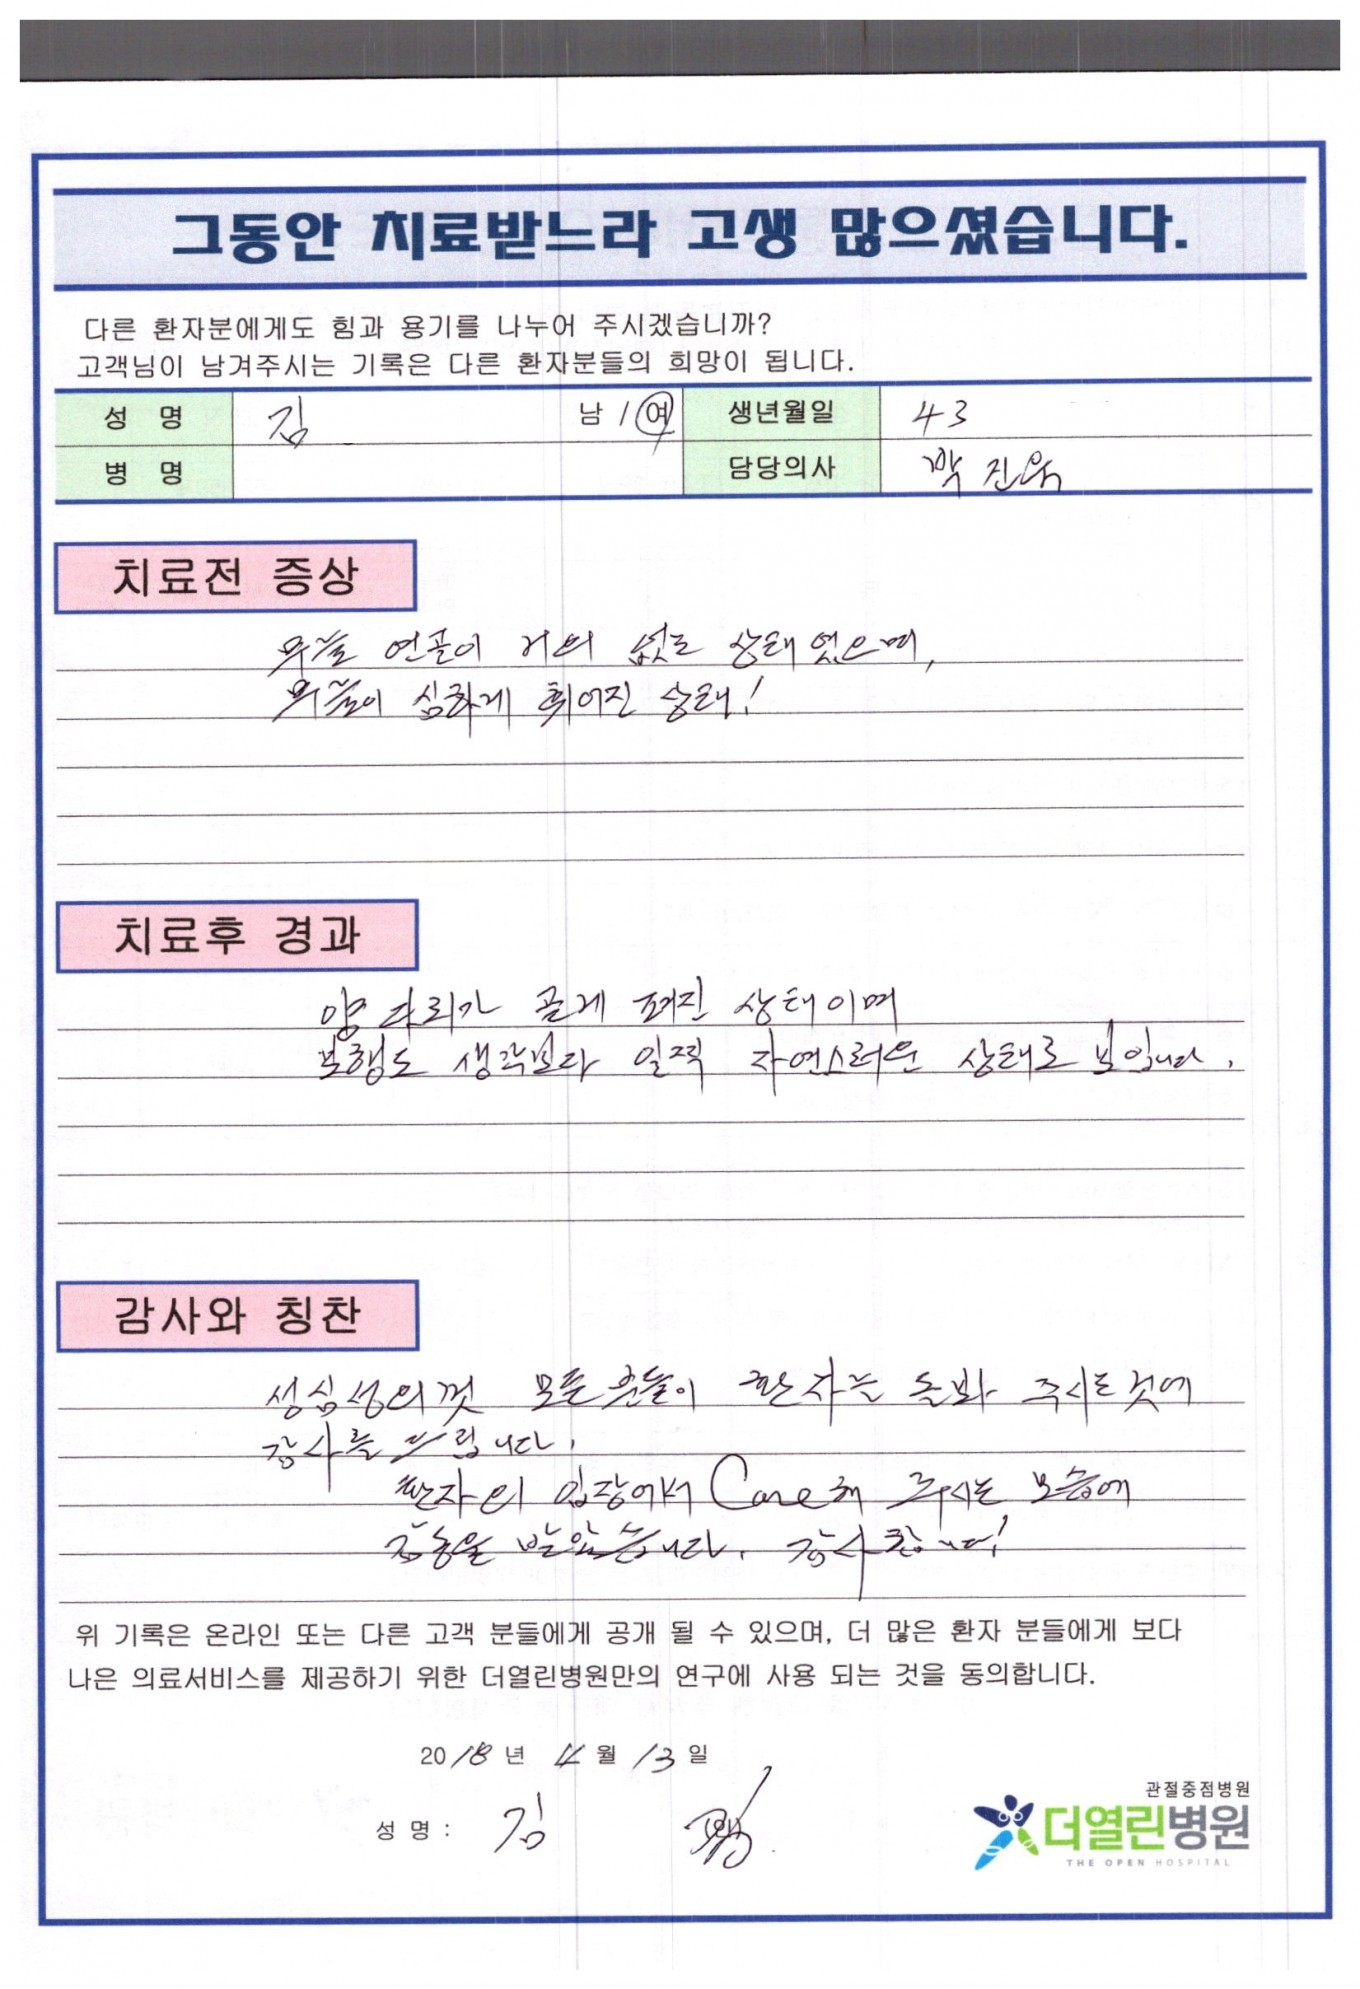 그동안 치료받느라 고생 많으셨습니다.
다른 환자분에게도 힘과 용기를 나누어 주시겠습니까?
고객님이 남겨주시는 기록은 다른 환자분들의 희망이 됩니다.
성 명 김 남 / 여 생년월일 43
병 명 담당의사 박진욱
치료전 증상
무릎 연골이 거의 없는 상태였으며,
무릎이 심하게 휘어진 상태!
치료후 경과
양다리가 곧게 펴진 상태이며
보행도 생각보다 일찍 자연스러운 상태로 보입니다.
감사와 칭찬
성심성의껏 모든분들이 환자를 돌봐 주시는것에
감사를 드립니다.
환자의 입장에서 Care해 주시는 모습에
감동을 받았습니다. 감사합니다!
위 기록은 온라인 또는 다른 고객 분들에게 공개 될 수 있으며, 더 많은 환자 분들에게 보다
나은 의료서비스를 제공하기 위한 더열린병원만의 연구에 사용 되는 것을 동의합니다.
2018년 4월 13일
성 명 : 김
관절중점병원
더열린병원
THE OPEN HOSPITAL